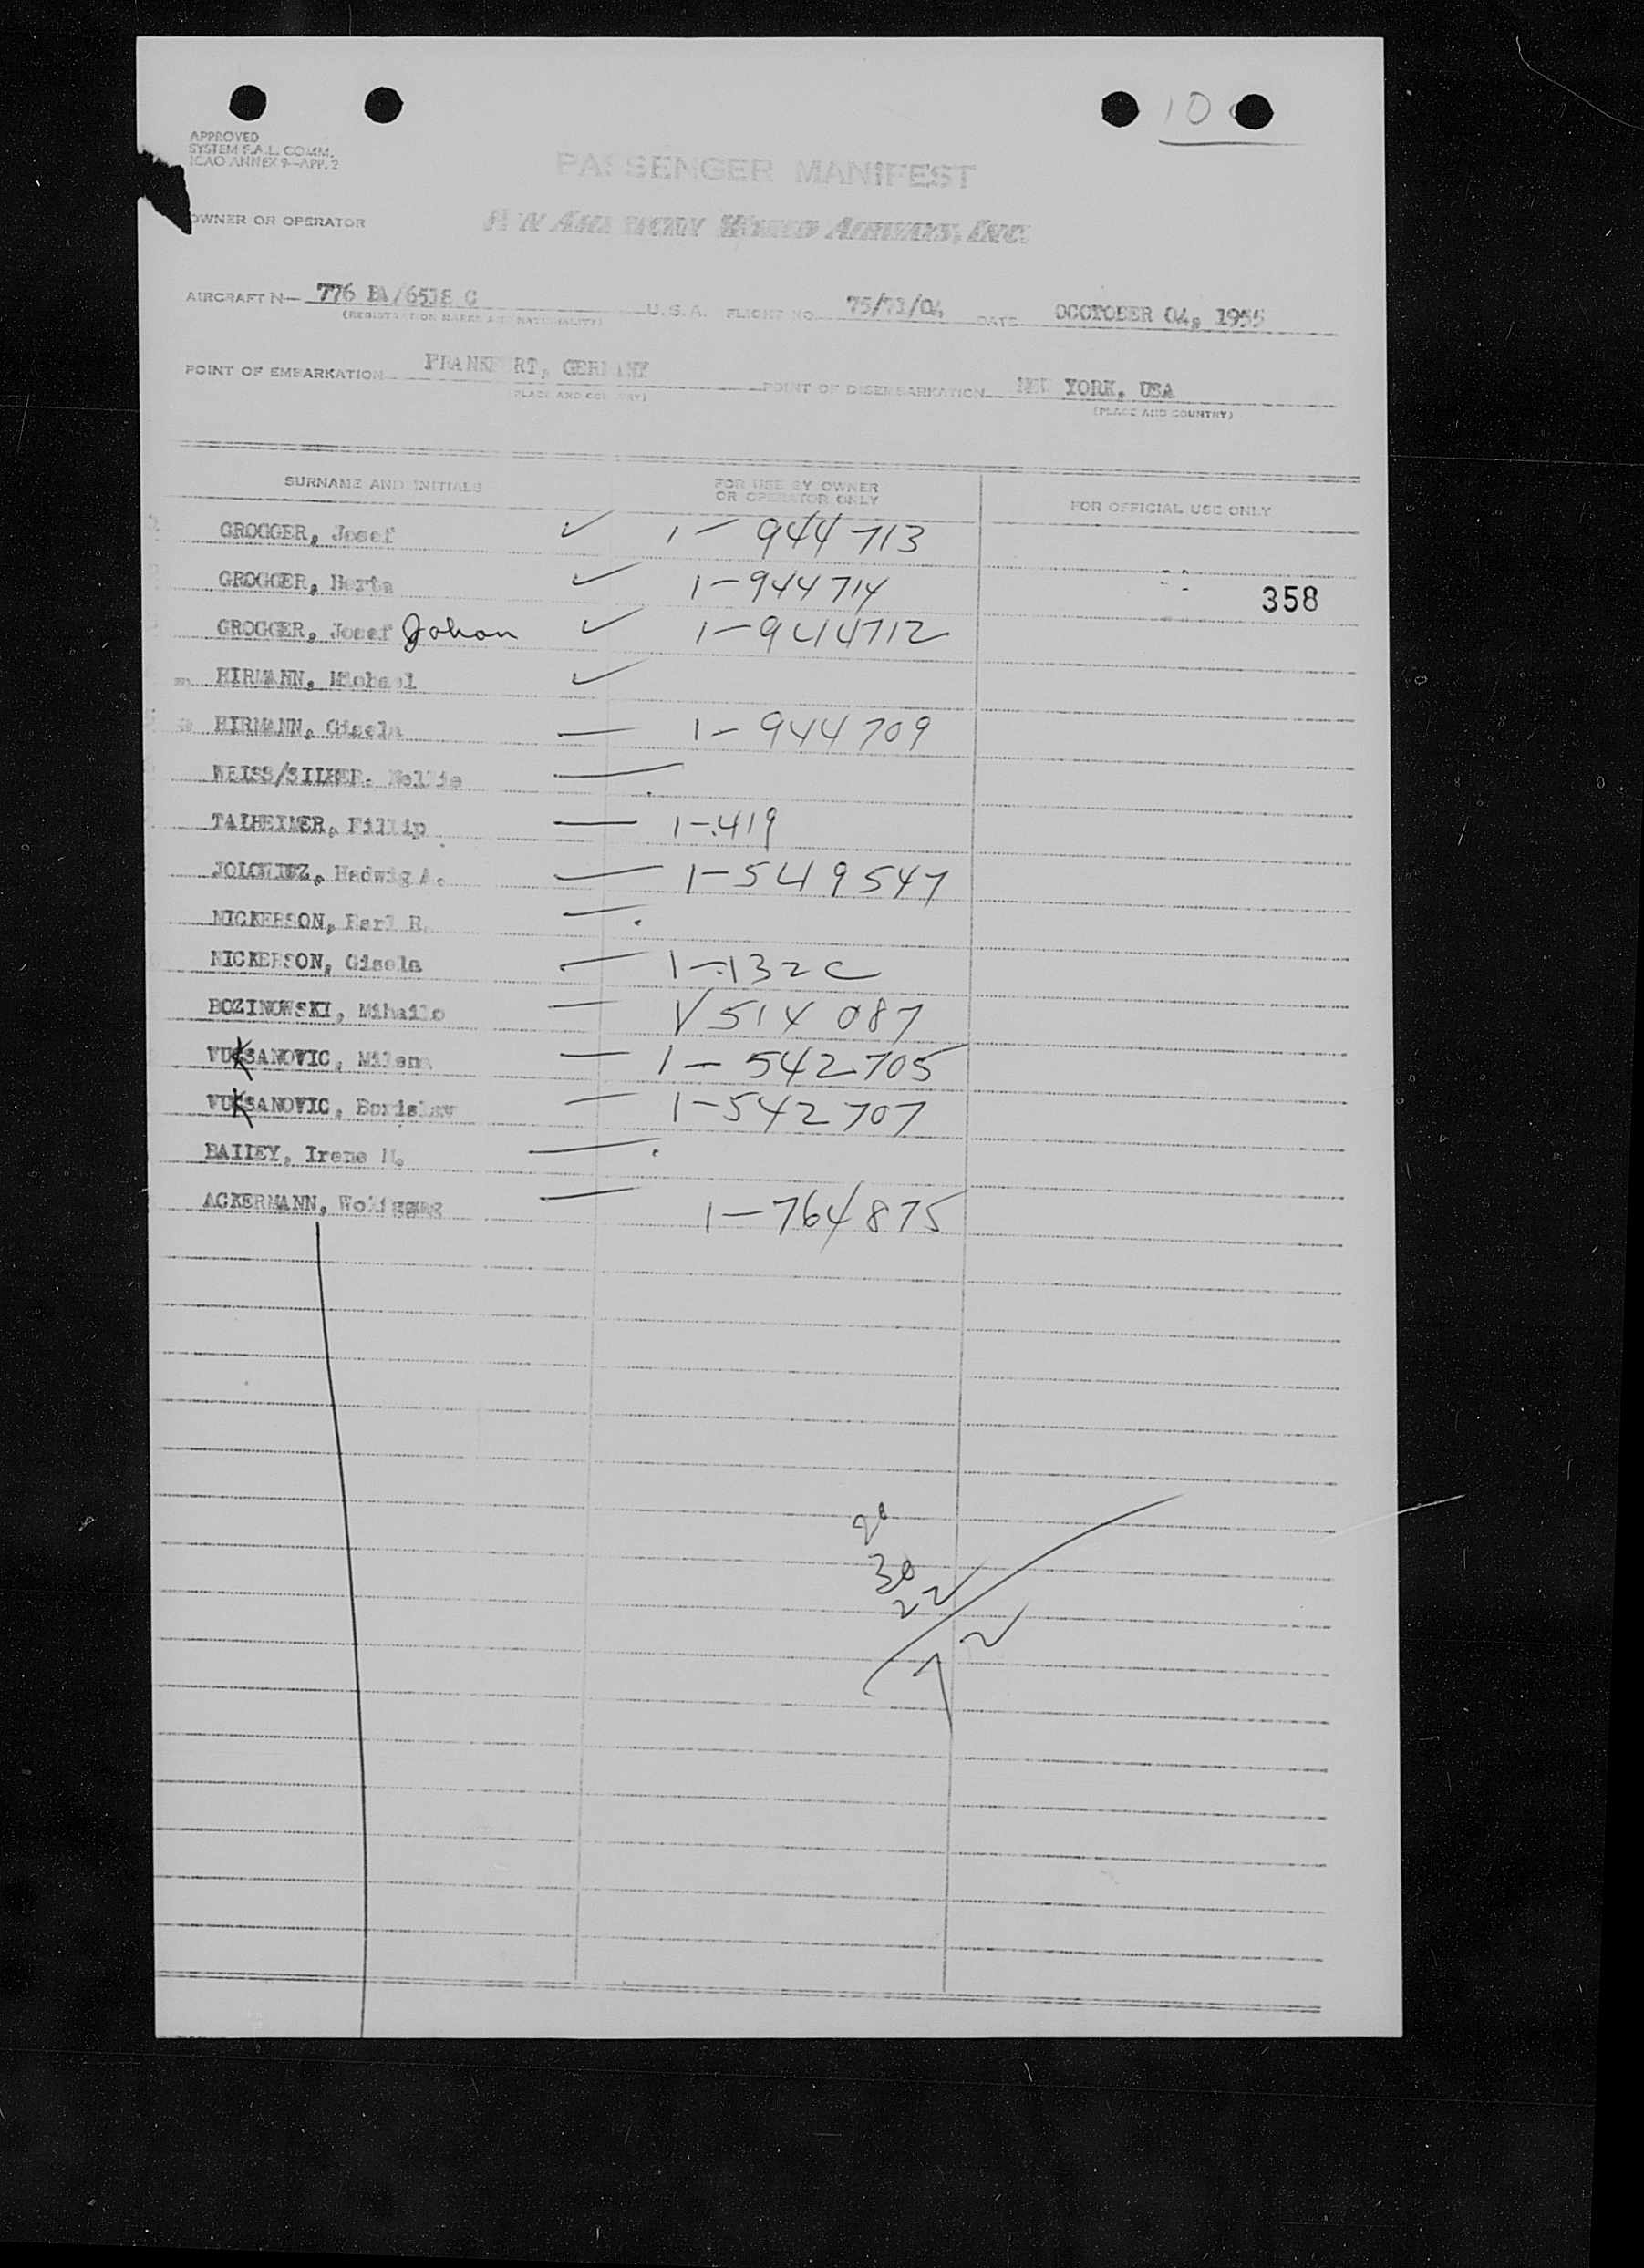 10
APPROVED
SYSTEM F.A.L. COMM.
ICAO ANNEX 9-APP. 2
PASSENGER MANIFEST
OWNER OR OPERATOR
AIRWAYS, INC.
AIRCRAFT N— 776 PA/6518 C U.S.A. FLIGHT NO. 75/71/04 DATE OCOTOBER 04, 1955
(REGISTRATION MARKS AND NATIONALITY)
POINT OF EMBARKATION FRANKFURT, GERMANY POINT OF DISEMBARKATION NEW YORK, USA
(PLACE AND COUNTRY) (PLACE AND COUNTRY)
SURNAME AND INITIALS FOR USE BY OWNER OR OPERATOR ONLY FOR OFFICIAL USE ONLY
GROGGER, Josef ✓ 1-944713
GROGGER, Herta ✓ 1-944714
358
GROGGER, Josef Johan ✓ 1-944712
HIRMANN, Michael ✓
HIRMANN, Gisela — 1-944709
WEISS/SILBER. Nellie —
TALHEIMER, Fillip — 1-419
JOLOWICZ, Hedwig A. — 1-549547
NICKERSON, Earl R. —
NICKERSON, Gisela — 1-132C
BOZINOWSKI, Mihailo — 514087
VUKSANOVIC, Milena — 1-542705
VUKSANOVIC, Borislav — 1-542707
BAILEY, Irene M. —
ACKERMANN, Wolfgang — 1-764875
20
30
22
72